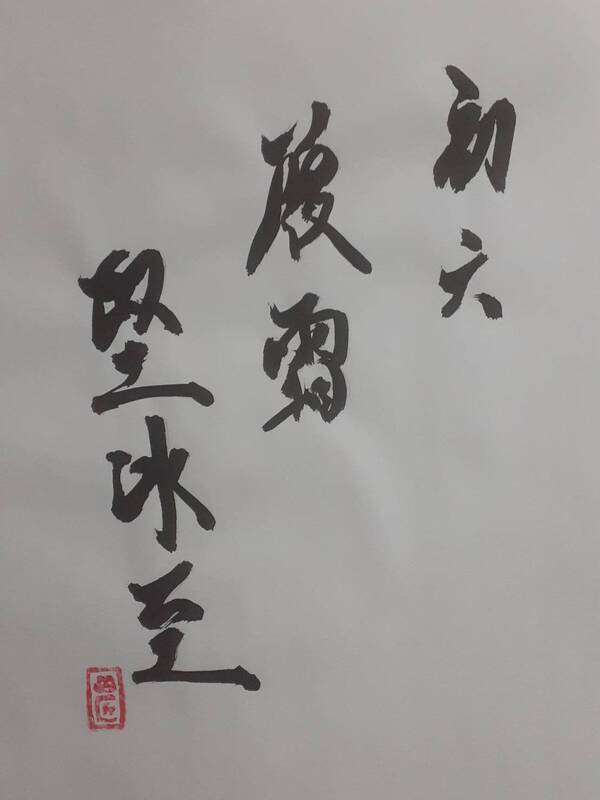 初六
履霜
堅冰至